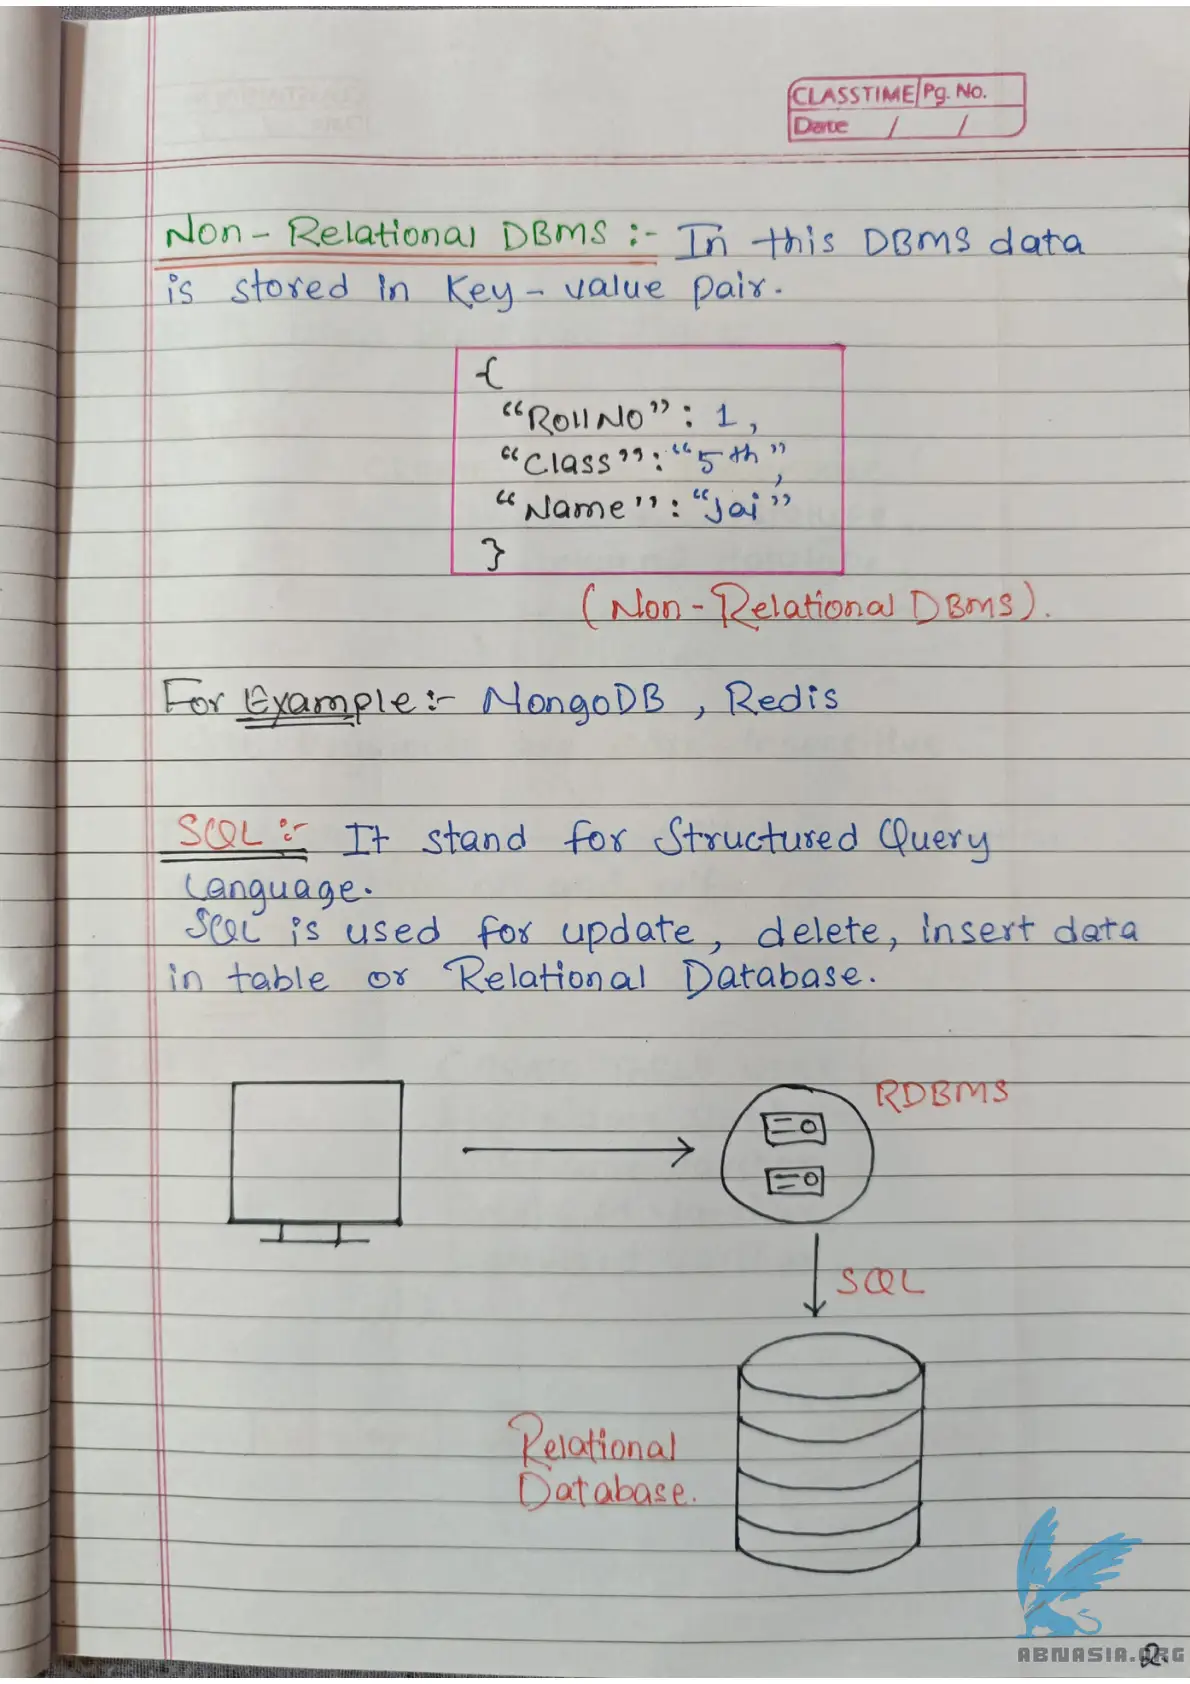 CLASSTIME Pg. No.
Date / /
Non-Relational DBMS :- In this DBMS data
is stored in Key-value pair.
{
"RollNo": 1,
"Class": "5th",
"Name": "Jai"
}
(Non-Relational DBMS).
For Example:- MongoDB, Redis
SQL :- It stand for Structured Query
Language.
SQL is used for update, delete, insert data
in table or Relational Database.
RDBMS
SQL
Relational
Database.
ABNASIA.ORG
2.